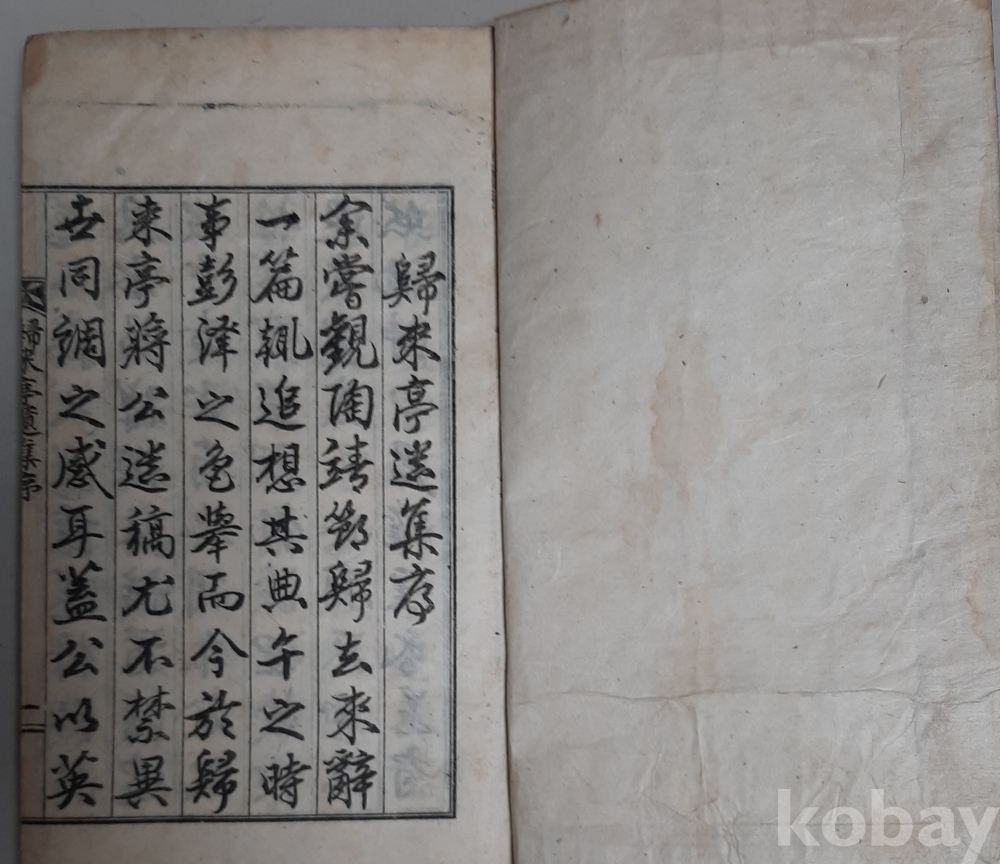 歸來亭遺集序
余嘗觀陶靖節歸去來辭
一篇輒追想其典午之時
事彭澤之色擧而今於歸
来亭蔣公遺稿尤不禁異
世同調之感耳蓋公以英
歸來亭遺集序
一
kobay